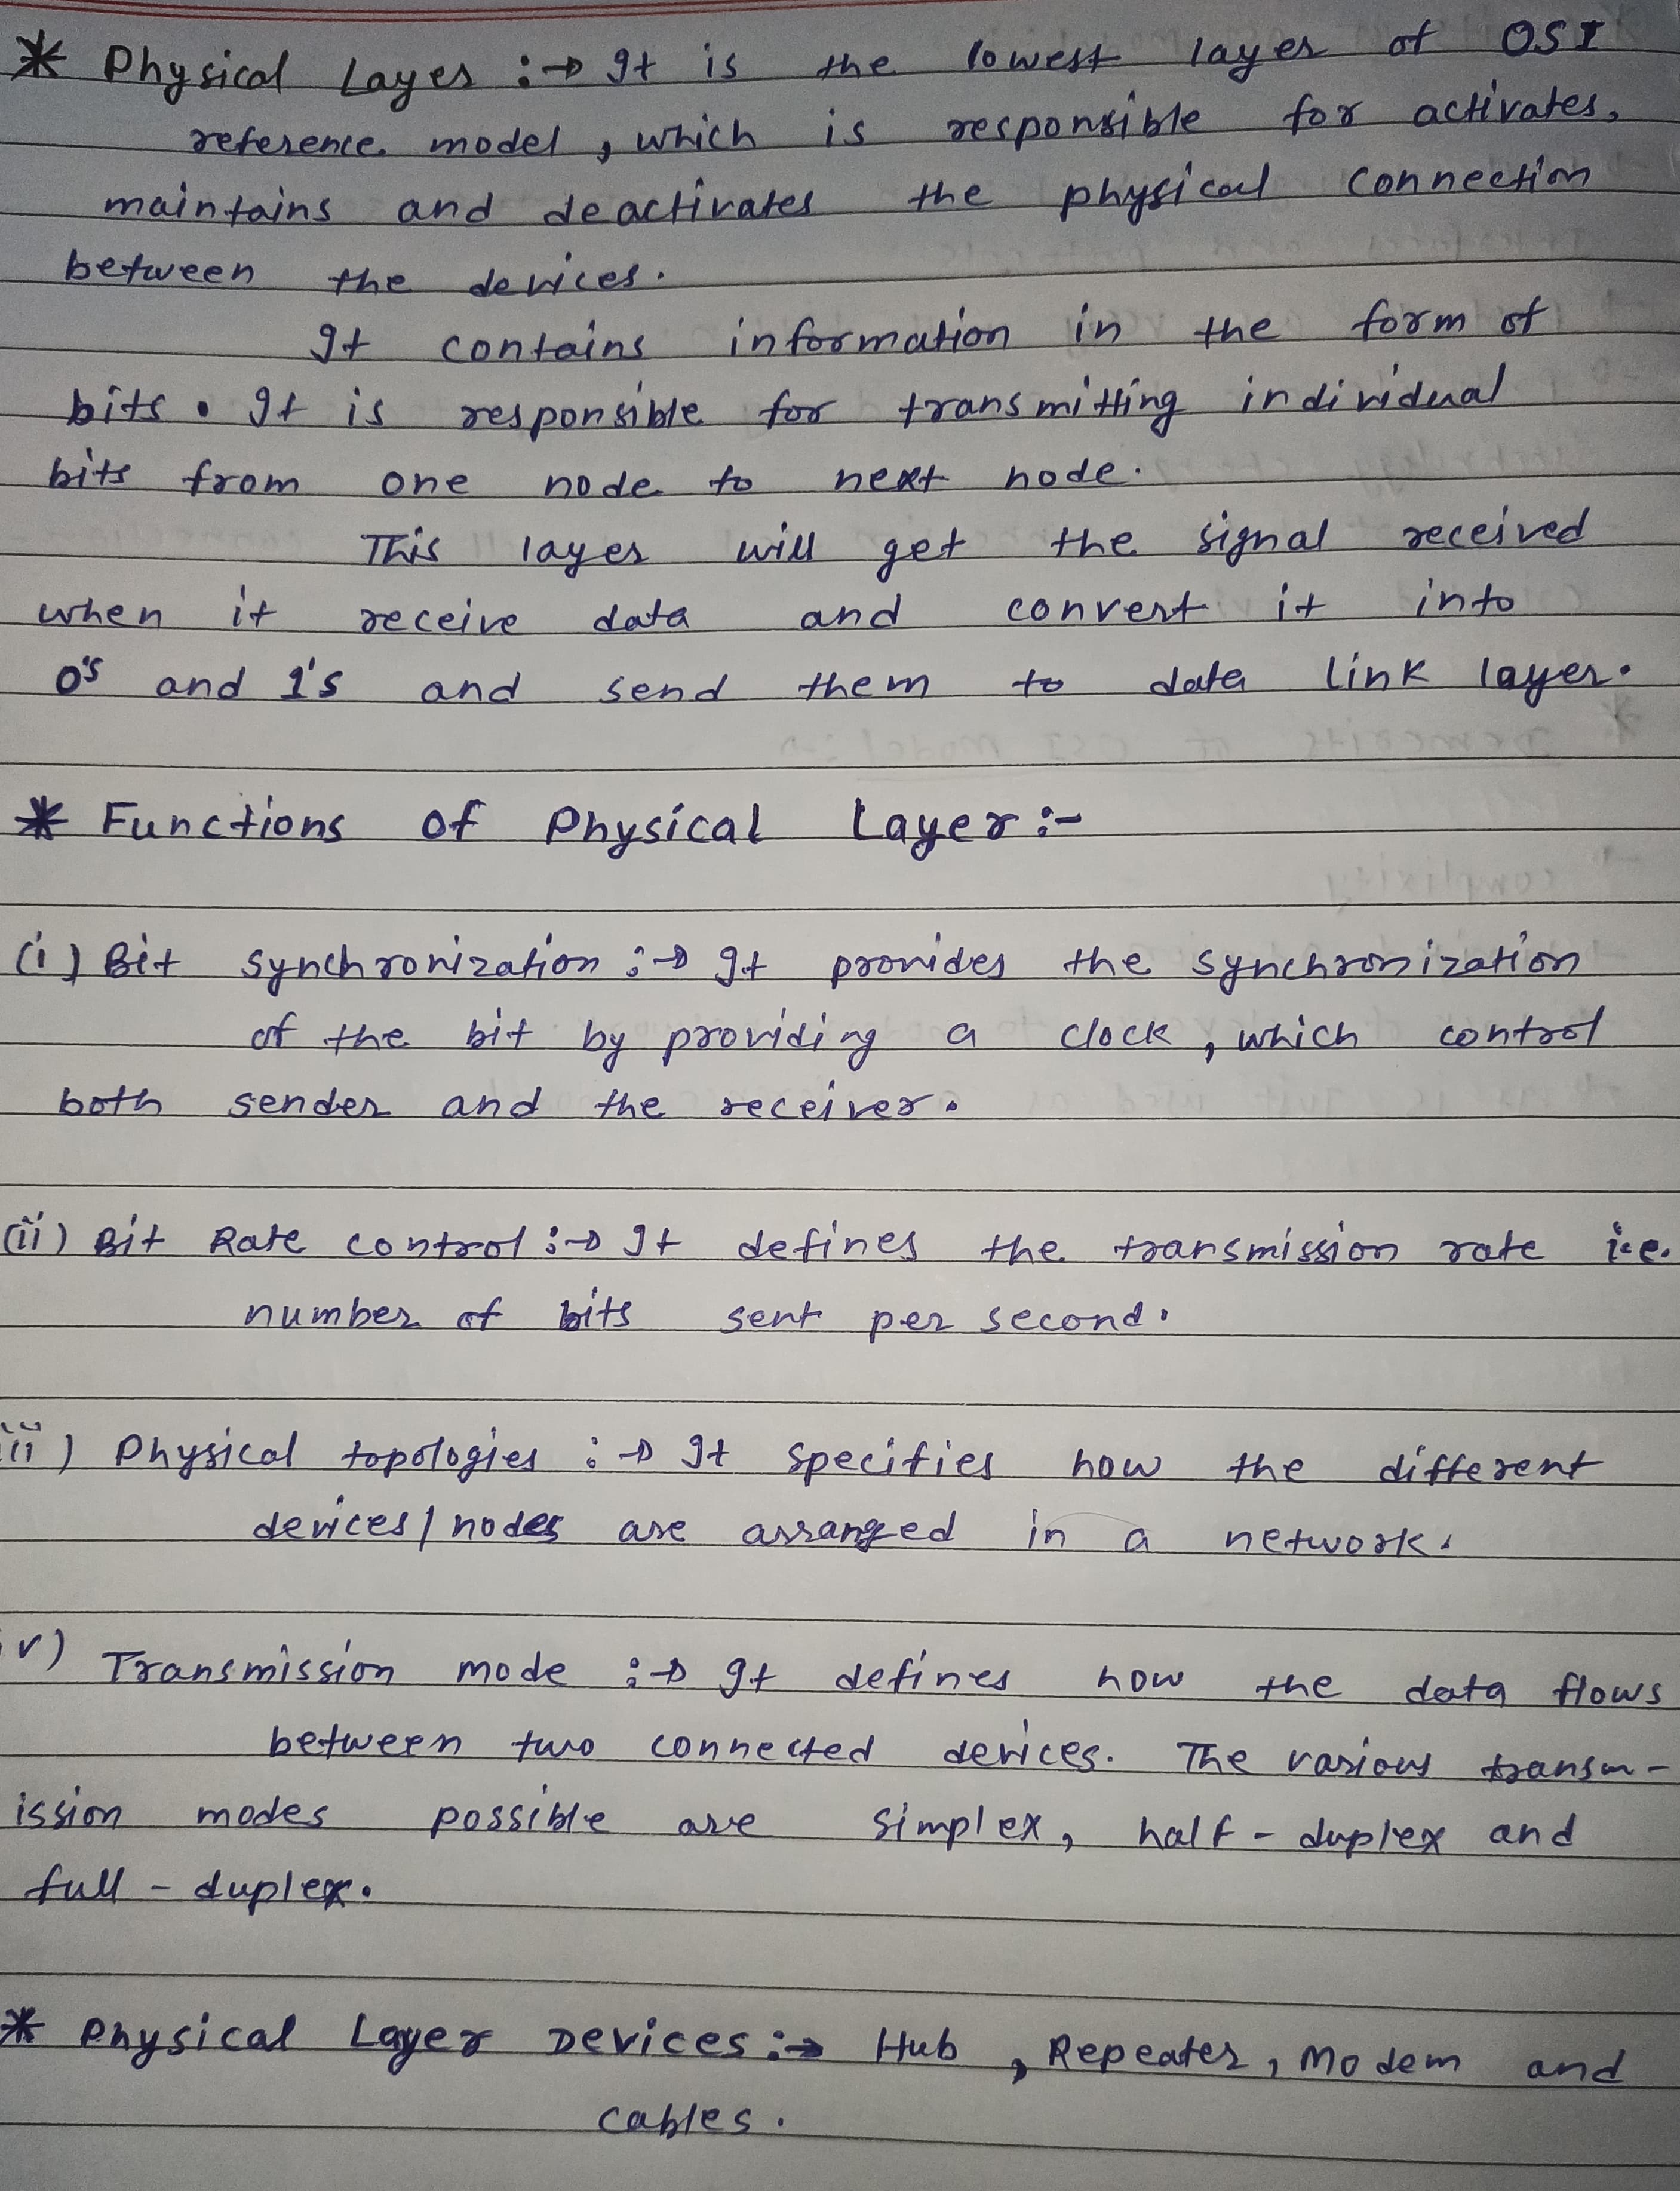 * Physical Layer :→ It is the lowest layer of OSI
reference model, which is responsible for activates,
maintains and deactivates the physical connection
between the devices.
It contains information in the form of
bits. It is responsible for transmitting individual
bits from one node to next node.
This layer will get the signal received
when it receive data and convert it into
0's and 1's and send them to data link layer.
* Functions of Physical Layer :-
(i) Bit synchronization :→ It provides the synchronization
of the bit by providing a clock, which control
both sender and the receiver.
(ii) Bit Rate control :→ It defines the transmission rate i.e.
number of bits sent per second.
iii) Physical topologies :→ It specifies how the different
devices/nodes are arranged in a network.
iv) Transmission mode :→ It defines how the data flows
between two connected devices. The various transm-
ission modes possible are simplex, half-duplex and
full-duplex.
* Physical Layer Devices :→ Hub, Repeater, Modem and
cables.